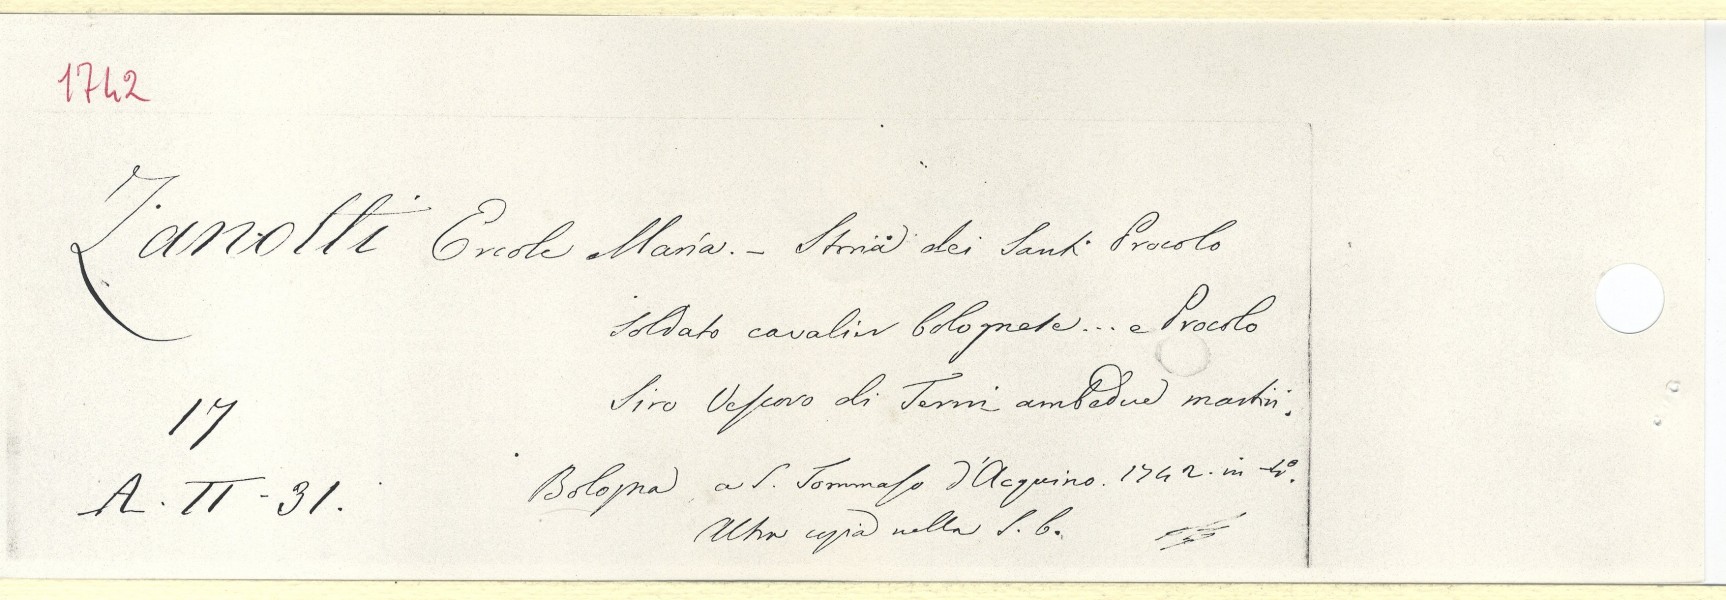 1742
Zanotti Ercole Maria. - Storia dei Santi Procolo
soldato cavalier bolognese... e Procolo
Siro Vescovo di Terni ambedue martiri.
17
A. II - 31.
Bologna a S. Tommaso d'Acquino. 1742. in 4º.
Altra copia nella S. C.